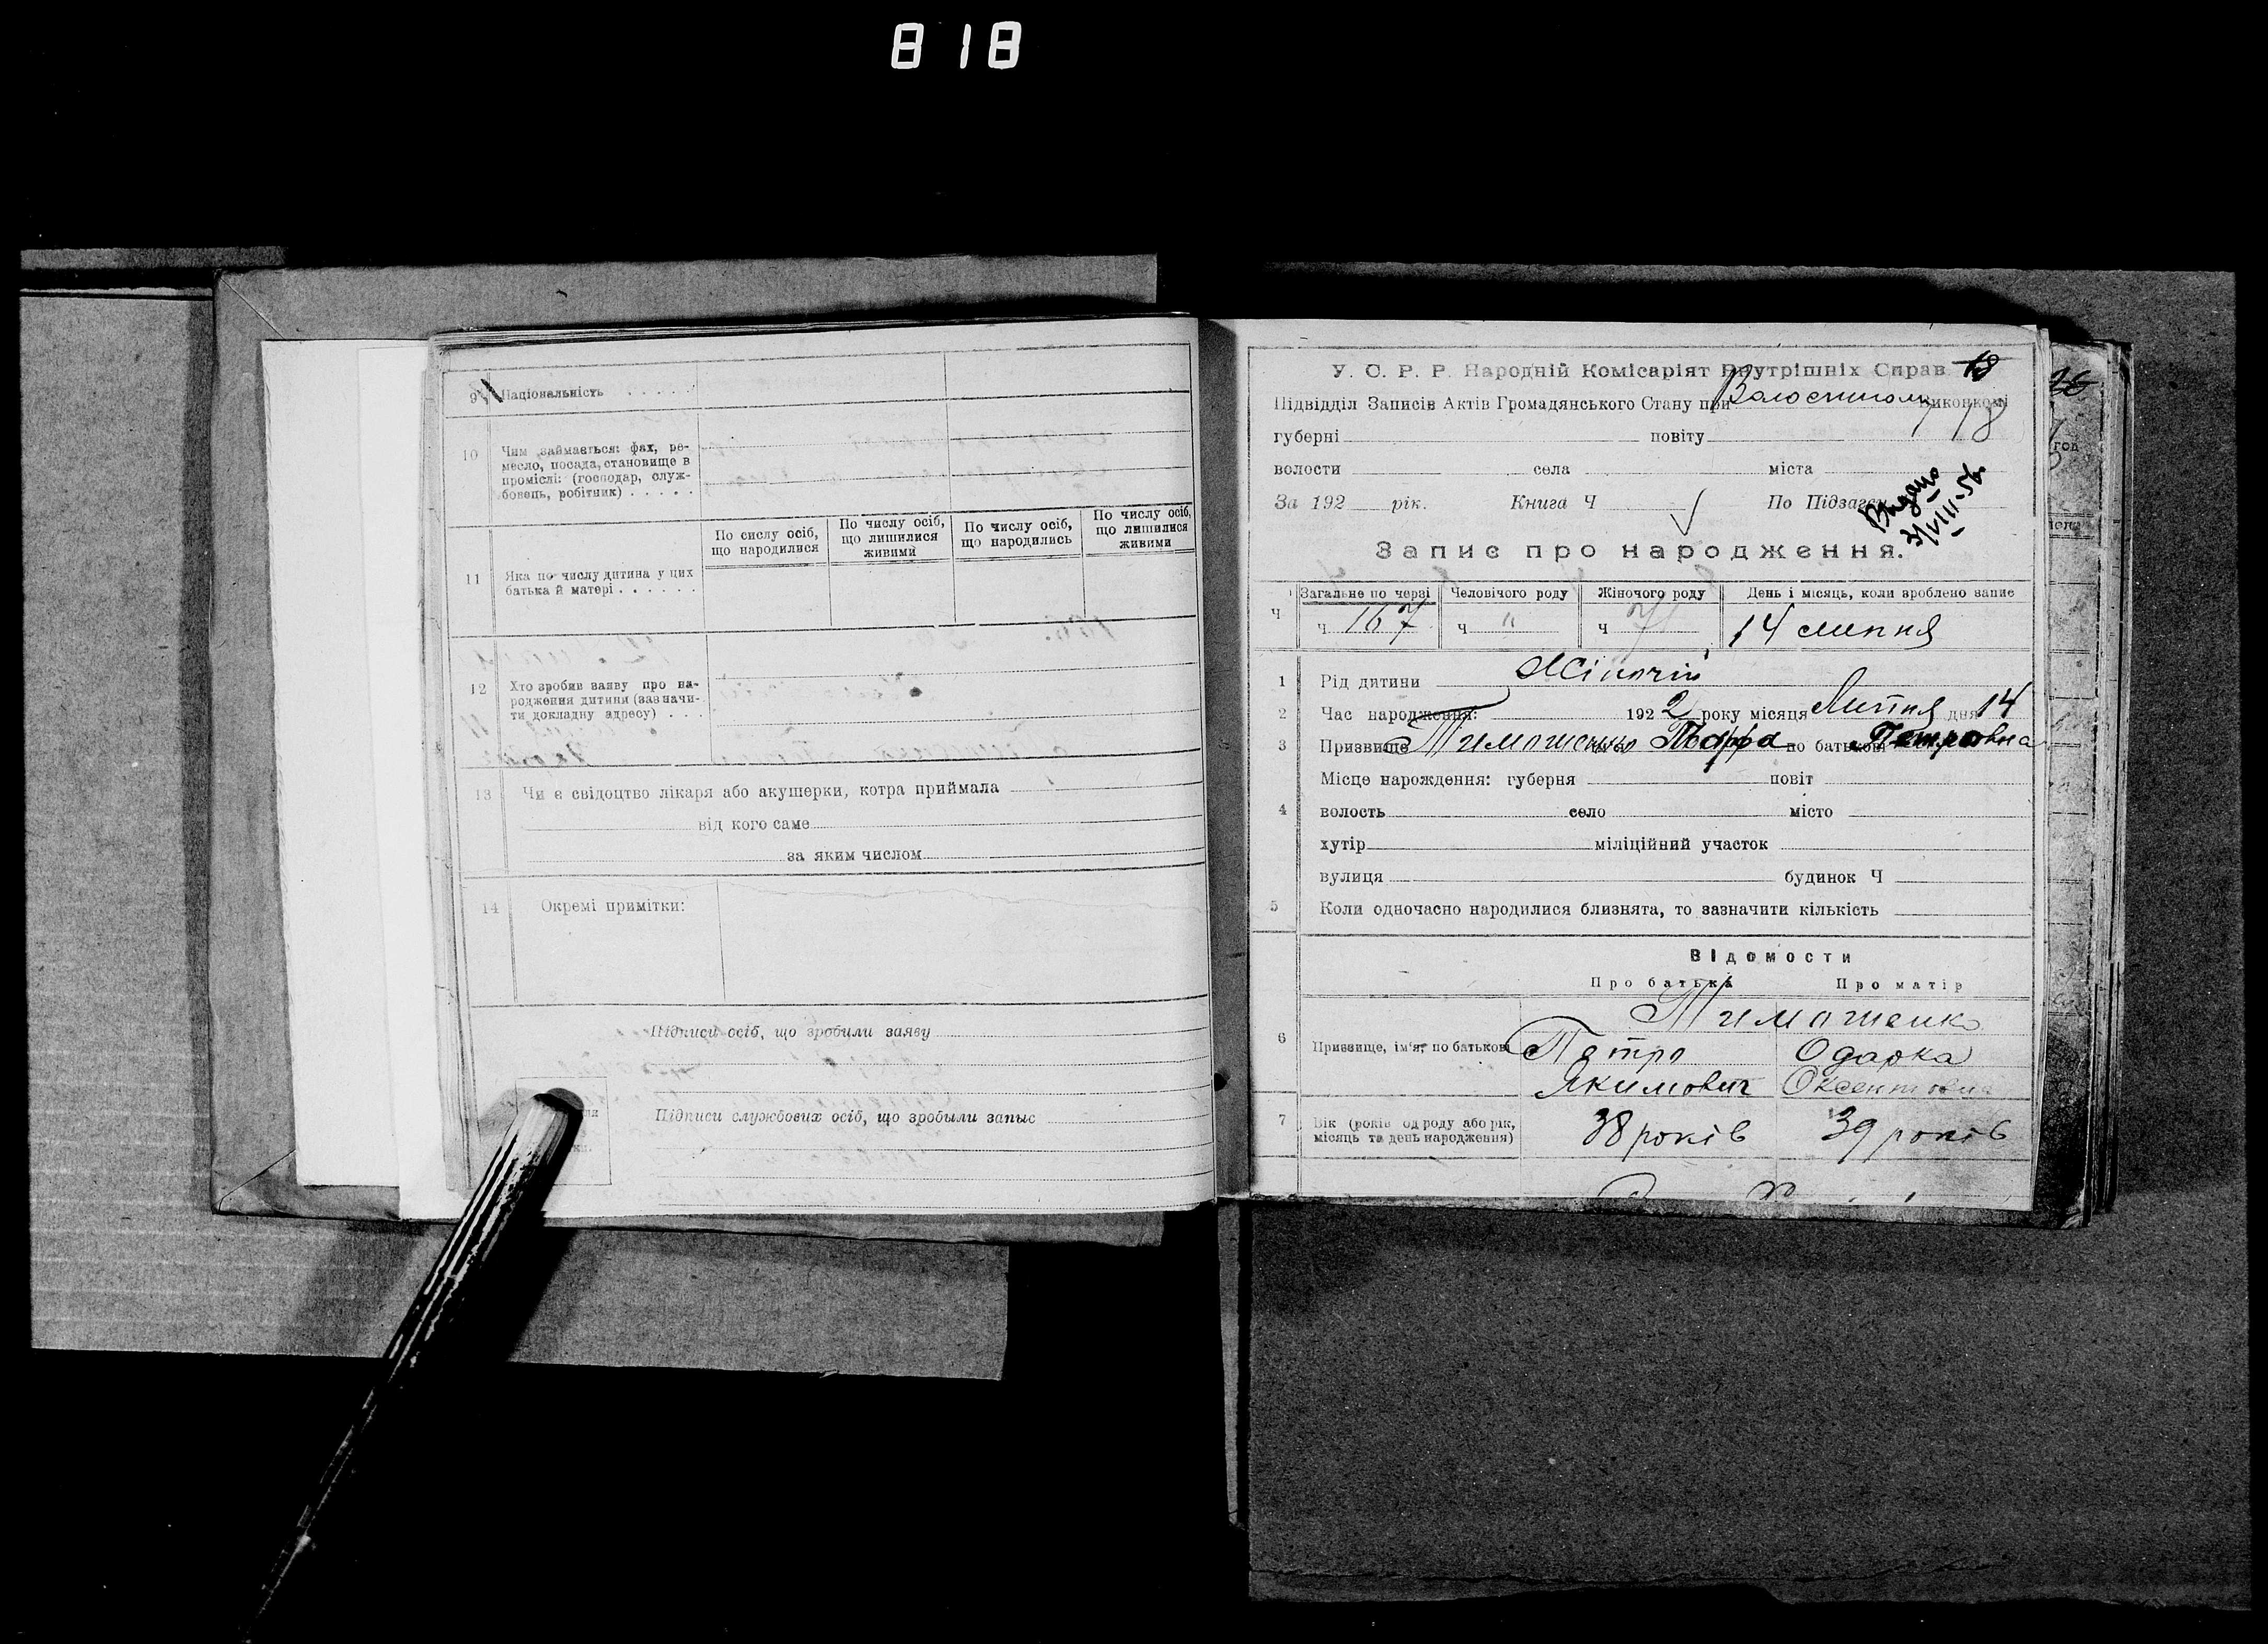 818
9 Національність . . . . .
10 Чим займається: фах, ре-
месло, посада, становище в
промислі: (господар, служ-
бовець, робітник) . . . . .
По сислу осіб, що народилися
По числу осіб, що лишилися живими
По числу осіб, що народились
По числу осіб, що лишилися живими
11 Яка по числу дитина у цих
батька й матері . . . . . .
12 Хто зробив заяву про на-
родження дитини (зазначи-
ти докладну адресу) . . .
13 Чи є свідоцтво лікаря або акушерки, котра приймала
від кого саме
за яким числом
14 Окремі примітки:
Підписи осіб, що зробили заяву
Підписи службових осіб, що зробыли запыс
У. С. Р. Р. Народній Комісаріят Внутрішніх Справ 18
Підвідділ Записів Актів Громадянського Стану при виконкомі
губерні повіту 18
волости села міста
За 192 рік. Книга Ч По Підзаген
Видано
3/VIII-56
Запис про народження.
Загальне по черзі Человічого роду Жіночого роду День і місяць, коли зроблено запис
Ч ч 167 ч " ч 14 липня
1 Рід дитини Жіночий
2 Час народження: 1922 року місяця Липня дня 14
3 Призвище Тимошенко по батькові Петровна
Місце нарождення: губерня повіт
4 волость село місто
хутір міліційний участок
вулиця будинок Ч
5 Коли одночасно народилися близнята, то зазначити кількість
Відомости
Про батька Про матір
Тимошенко
6 Призвище, ім'я, по батькові Петро Одарка
Якимович Оксентовна
7 Вік (років од роду або рік,
місяць та день народження) 38 років 39 років